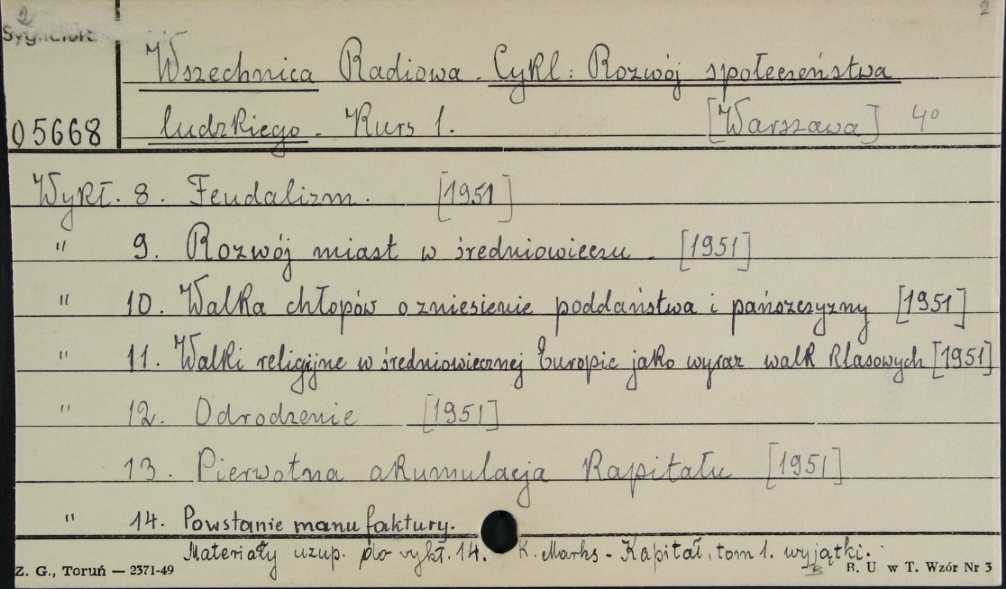 2 2
Sygnatura
Wszechnica Radiowa. Cykl: Rozwój społeczeństwa
05668 ludzkiego. Kurs 1. [Warszawa] 4°
Wykł. 8. Feudalizm. [1951]
" 9. Rozwój miast w średniowieczu. [1951]
" 10. Walka chłopów o zniesienie poddaństwa i pańszczyzny [1951]
" 11. Walki religijne w średniowiecznej Europie jako wyraz walk klasowych [1951]
" 12. Odrodzenie [1951]
13. Pierwotna akumulacja kapitału [1951]
" 14. Powstanie manufaktury.
Materiały uzup. do wykł. 14. K. Marks - Kapitał, tom 1. wyjątki.
Z. G., Toruń — 2371-49 B. U w T. Wzór Nr 3